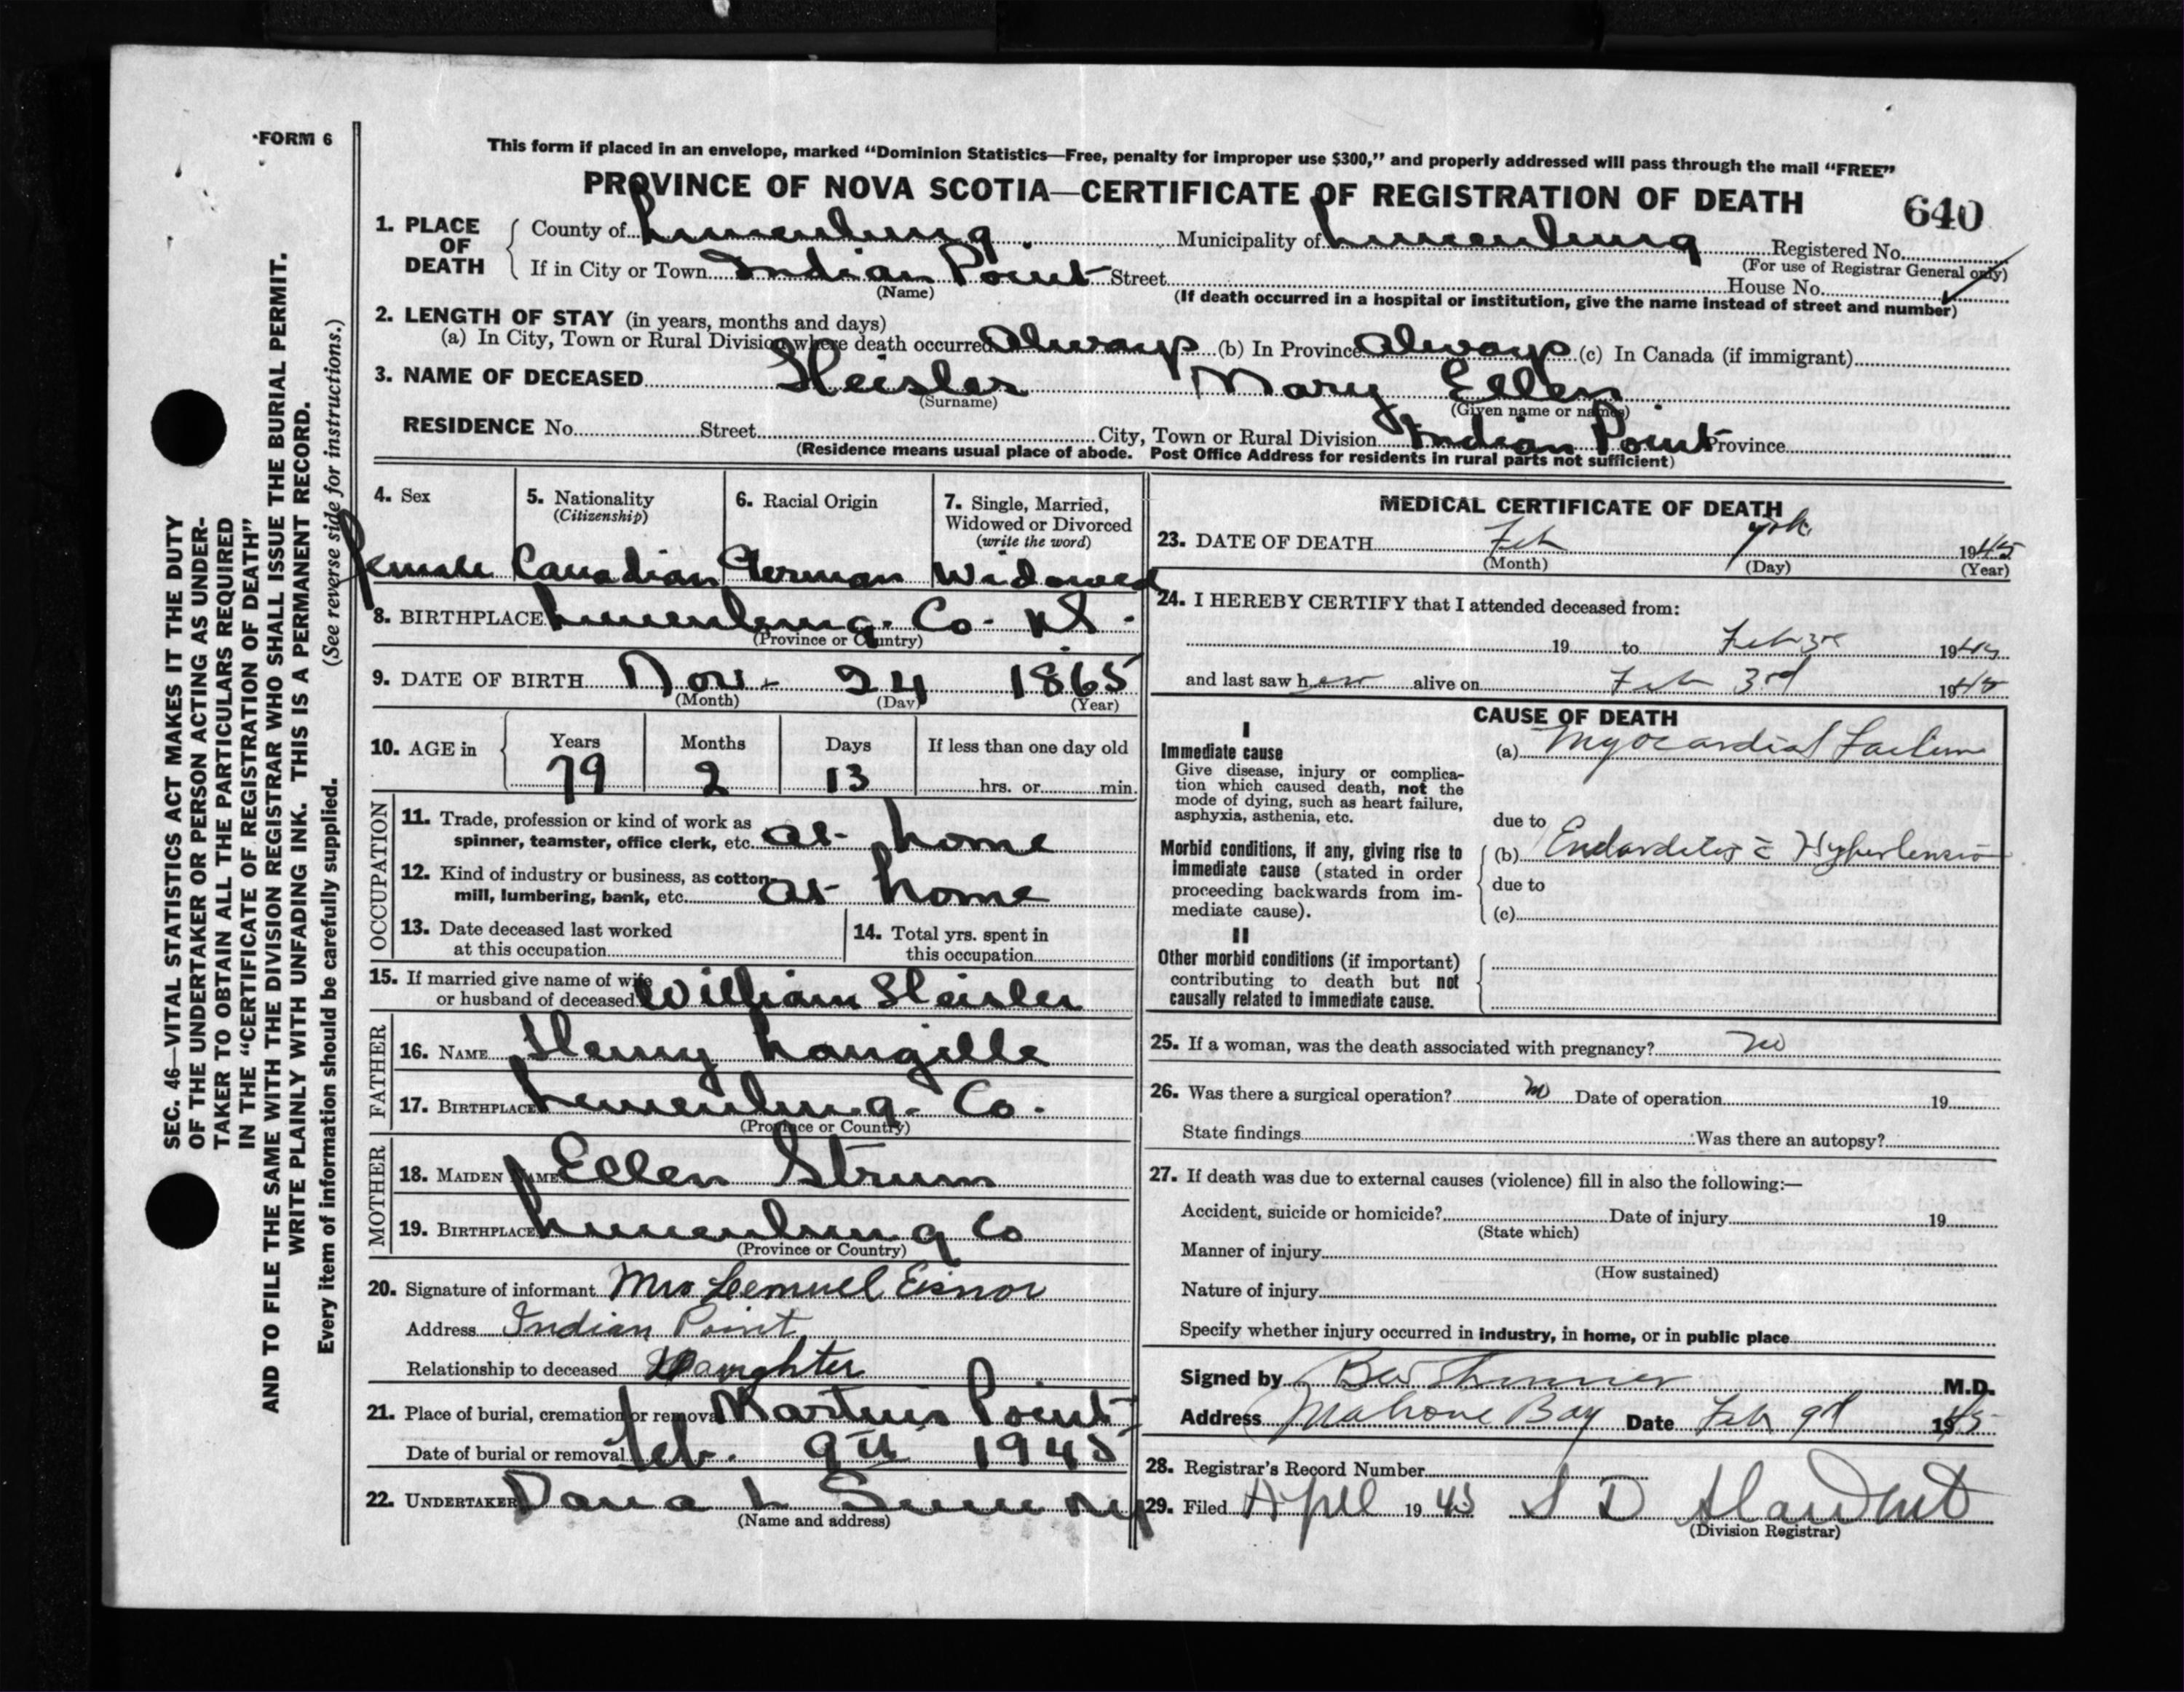 FORM 6
This form if placed in an envelope, marked “Dominion Statistics—Free, penalty for improper use $300,” and properly addressed will pass through the mail “FREE”
PROVINCE OF NOVA SCOTIA—CERTIFICATE OF REGISTRATION OF DEATH
640
1. PLACE OF DEATH
County of Lunenburg Municipality of Lunenburg Registered No.
(For use of Registrar General only)
If in City or Town Indian Point Street House No.
(Name) (If death occurred in a hospital or institution, give the name instead of street and number)
2. LENGTH OF STAY (in years, months and days)
(a) In City, Town or Rural Division where death occurred Always (b) In Province Always (c) In Canada (if immigrant)
3. NAME OF DECEASED Heisler Mary Ellen
(Surname) (Given name or names)
RESIDENCE No. Street City, Town or Rural Division Indian Point Province
(Residence means usual place of abode. Post Office Address for residents in rural parts not sufficient)
4. Sex
Female
5. Nationality
(Citizenship)
Canadian
6. Racial Origin
German
7. Single, Married,
Widowed or Divorced
(write the word)
Widowed
8. BIRTHPLACE Lunenburg. Co. N.S.
(Province or Country)
9. DATE OF BIRTH Nov. 24 1865
(Month) (Day) (Year)
10. AGE in
Years Months Days If less than one day old
79 2 13 hrs. or min.
OCCUPATION
11. Trade, profession or kind of work as
spinner, teamster, office clerk, etc. at home
12. Kind of industry or business, as cotton-
mill, lumbering, bank, etc. at home
13. Date deceased last worked
at this occupation
14. Total yrs. spent in
this occupation
15. If married give name of wife
or husband of deceased William Heisler
FATHER
16. NAME Henry Langille
17. BIRTHPLACE Lunenburg. Co.
(Province or Country)
MOTHER
18. MAIDEN NAME Ellen Strum
19. BIRTHPLACE Lunenburg Co
(Province or Country)
20. Signature of informant Mrs Lemuel Eisnor
Address Indian Point
Relationship to deceased Daughter
21. Place of burial, cremation or removal Martins Point
Date of burial or removal Feb. 9th 1945
22. UNDERTAKER Dana L
(Name and address)
MEDICAL CERTIFICATE OF DEATH
23. DATE OF DEATH Feb 7th 1945
(Month) (Day) (Year)
24. I HEREBY CERTIFY that I attended deceased from:
19 to Feb 3rd 1945
and last saw her alive on Feb 3rd 1945
CAUSE OF DEATH
I
Immediate cause
Give disease, injury or complica-
tion which caused death, not the
mode of dying, such as heart failure,
asphyxia, asthenia, etc.
(a) Myocardial Failure
due to
Morbid conditions, if any, giving rise to
immediate cause (stated in order
proceeding backwards from im-
mediate cause).
(b) Endarditis c̄ Hypertension
due to
(c)
II
Other morbid conditions (if important)
contributing to death but not
causally related to immediate cause.
25. If a woman, was the death associated with pregnancy? no
26. Was there a surgical operation? no Date of operation 19
State findings Was there an autopsy?
27. If death was due to external causes (violence) fill in also the following:—
Accident, suicide or homicide? Date of injury 19
(State which)
Manner of injury
(How sustained)
Nature of injury
Specify whether injury occurred in industry, in home, or in public place
Signed by M.D.
Address Mahone Bay Date Feb 9th 1945
28. Registrar's Record Number
29. Filed April 19 45 S D
(Division Registrar)
SEC. 46—VITAL STATISTICS ACT MAKES IT THE DUTY
OF THE UNDERTAKER OR PERSON ACTING AS UNDER-
TAKER TO OBTAIN ALL THE PARTICULARS REQUIRED
IN THE “CERTIFICATE OF REGISTRATION OF DEATH”
AND TO FILE THE SAME WITH THE DIVISION REGISTRAR WHO SHALL ISSUE THE BURIAL PERMIT.
WRITE PLAINLY WITH UNFADING INK. THIS IS A PERMANENT RECORD.
Every item of information should be carefully supplied. (See reverse side for instructions.)